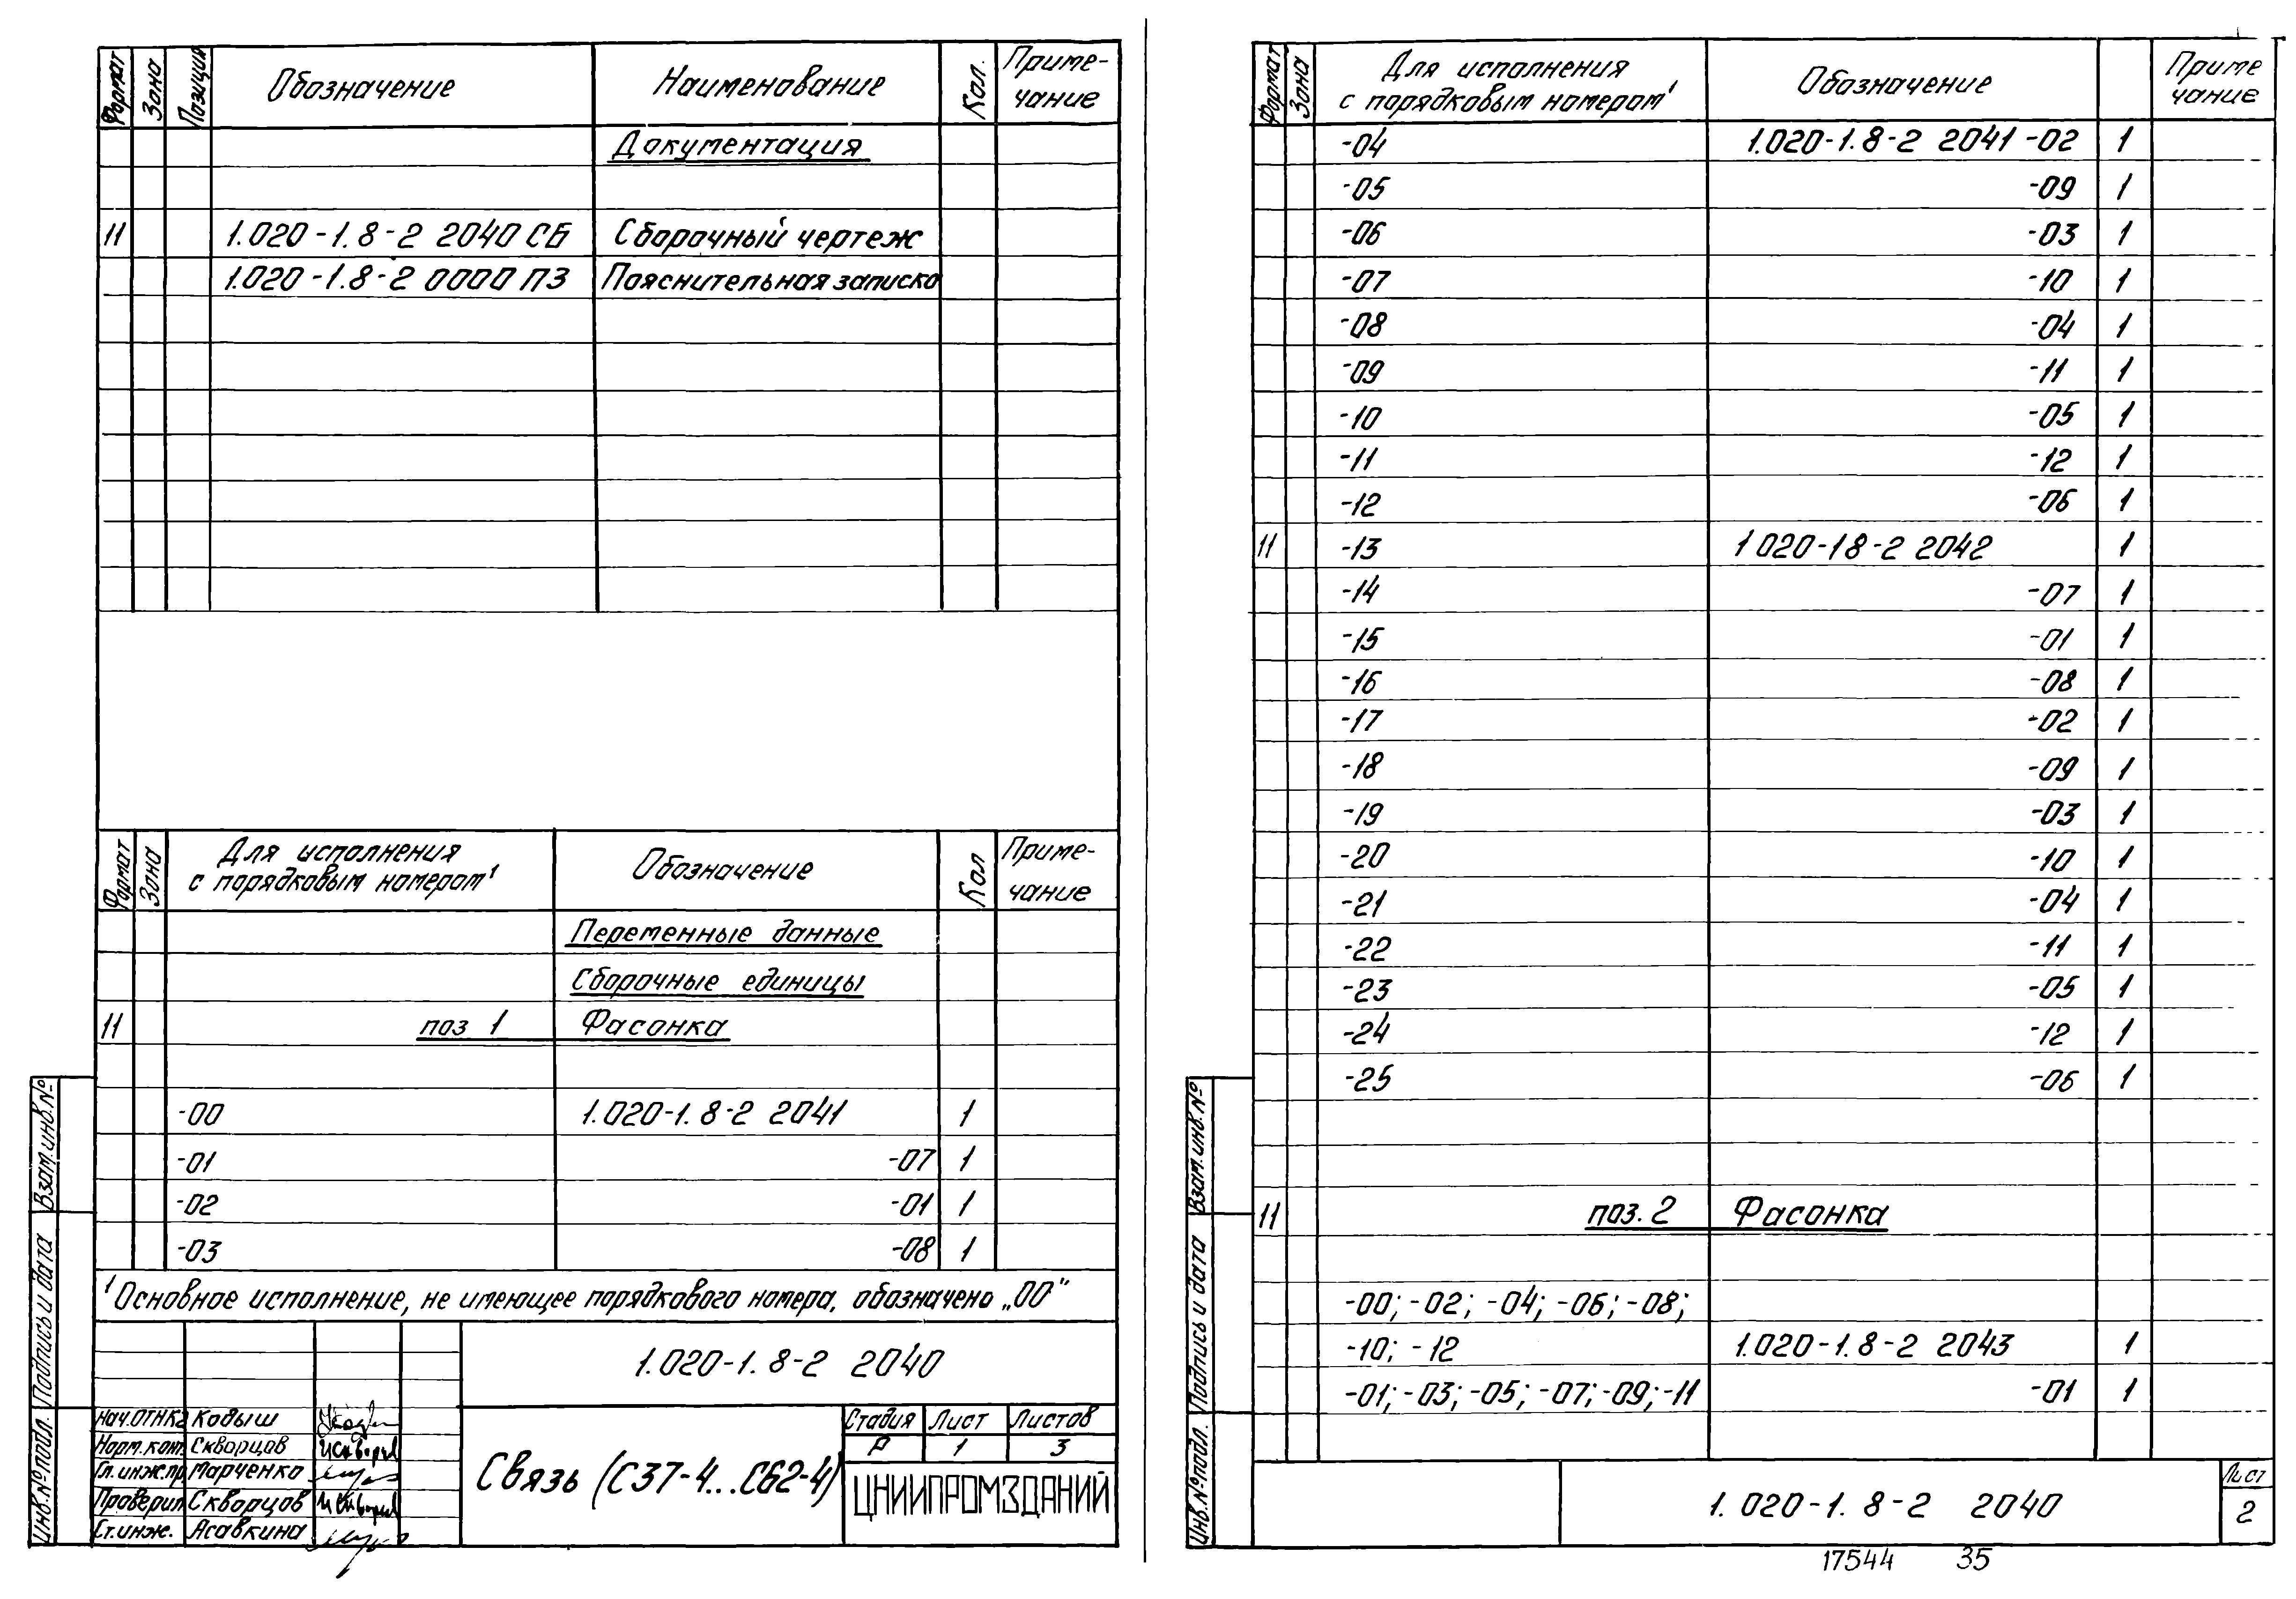 Формат Зона Позиция Обозначение Наименование Кол. Приме-
чание
Документация
11 1.020-1.8-2 2040 СБ Сборочный чертеж
1.020-1.8-2 0000 ПЗ Пояснительная записка
Формат Зона Для исполнения Обозначение Кол Приме-
с порядковым номером¹ чание
Переменные данные
Сборочные единицы
11 поз 1 Фасонка
-00 1.020-1.8-2 2041 1
-01 -07 1
-02 -01 1
-03 -08 1
¹Основное исполнение, не имеющее порядкового номера, обозначено „00"
1.020-1.8-2 2040
Нач.ОТНК2 Кодыш
Норм.конт. Скворцов
Гл.инж.пр. Марченко
Проверил Скворцов
Ст.инж. Асавкина
Связь (С37-4...С62-4)
Стадия Лист Листов
Р 1 3
ЦНИИПРОМЗДАНИЙ
Взам.инв.№
Подпись и дата
Инв.№ подл.
Формат Зона Для исполнения Обозначение Приме
с порядковым номером¹ чание
-04 1.020-1.8-2 2041 -02 1
-05 -09 1
-06 -03 1
-07 -10 1
-08 -04 1
-09 -11 1
-10 -05 1
-11 -12 1
-12 -06 1
11 -13 1 020-18-2 2042 1
-14 -07 1
-15 -01 1
-16 -08 1
-17 -02 1
-18 -09 1
-19 -03 1
-20 -10 1
-21 -04 1
-22 -11 1
-23 -05 1
-24 -12 1
-25 -06 1
11 поз. 2 Фасонка
-00; -02; -04; -06; -08;
-10; -12 1.020-1.8-2 2043 1
-01; -03; -05; -07; -09; -11 -01 1
Взам.инв.№
Подпись и дата
Инв.№ подл.
1.020-1.8-2 2040
Лист
2
17544 35